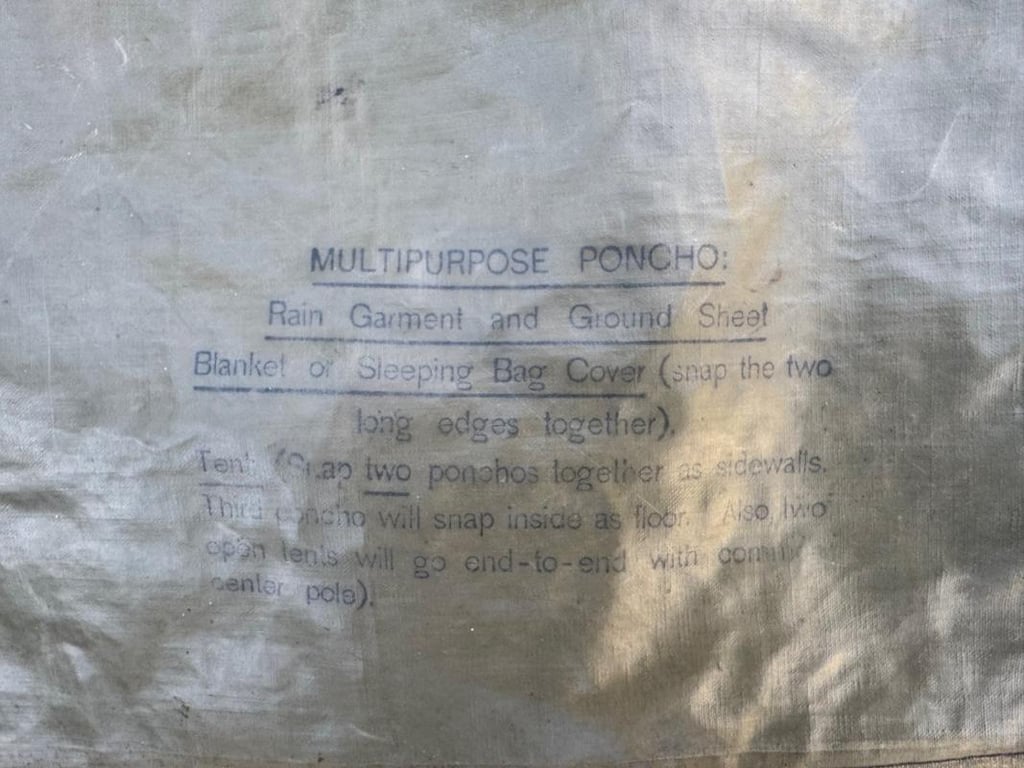 MULTIPURPOSE PONCHO:
Rain Garment and Ground Sheet
Blanket or Sleeping Bag Cover (snap the two
long edges together).
Tent (Snap two ponchos together as sidewalls.
Third poncho will snap inside as floor. Also, two
open tents will go end-to-end with common
center pole).